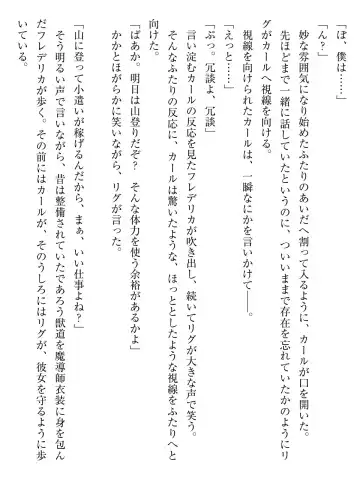 「ぼ、僕は……」
「ん？」
妙な雰囲気になり始めたふたりのあいだへ割って入るように、カールが口を開いた。
先ほどまで一緒に話していたというのに、ついいままで存在を忘れていたかのようにリ
グがカールへ視線を向ける。
視線を向けられたカールは、一瞬なにかを言いかけて――。
「えっと……」
「ぷっ。冗談よ、冗談」
言い淀むカールの反応を見たフレデリカが吹き出し、続いてリグが大きな声で笑う。
そんなふたりの反応に、カールは驚いたような、ほっとしたような視線をふたりへと
向けた。
「ばあか。明日は山登りだぞ？　そんな体力を使う余裕があるかよ」
かかとほがらかに笑いながら、リグが言った。
「山に登って小遣いが稼げるんだから、まぁ、いい仕事よね？」
そう明るい声で言いながら、昔は整備されていたであろう獣道を魔導師衣装に身を包ん
だフレデリカが歩く。その前にはカールが、そのうしろにはリグが、彼女を守るように歩
いている。